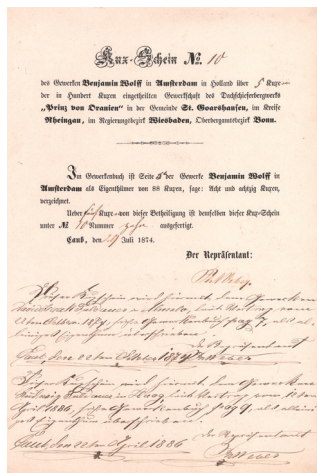 Kux-Schein No. 10
des Gewerken Benjamin Wolff in Amsterdam in Holland über 5 Kuxe
der in Hundert Kuxen eingetheilten Gewerkschaft des Dachschieferbergwerks
„Prinz von Oranien" in der Gemeinde St. Goarshausen, im Kreise
Rheingau, im Regierungsbezirk Wiesbaden, Oberbergamtsbezirk Bonn.
Im Gewerkenbuch ist Seite der Gewerke Benjamin Wolff in
Amsterdam als Eigenthümer von 88 Kuxen, sage: Acht und achtzig Kuxen,
verzeichnet.
Ueber fünf Kuxe von dieser Betheiligung ist demselben dieser Kux-Schein
unter No 10 Nummer zehn ausgefertigt.
Caub, den Juli 1874.
Der Repräsentant:
Dieser Kuxschein wird hiermit dem Gewerken
in laut Vertrag vom
22ten October 1874, siehe Gewerkenbuch pag 7, als
Eigenthum überschrieben
Caub den 22ten October 1874
Der Repräsentant
Dieser Kuxschein wird hiermit dem Gewerken
in Haag laut Vertrag vom
April 1886, siehe Gewerkenbuch pag 99, als allein
Eigenthum überschrieben.
Caub den 22ten April 1886
Der Repräsentant